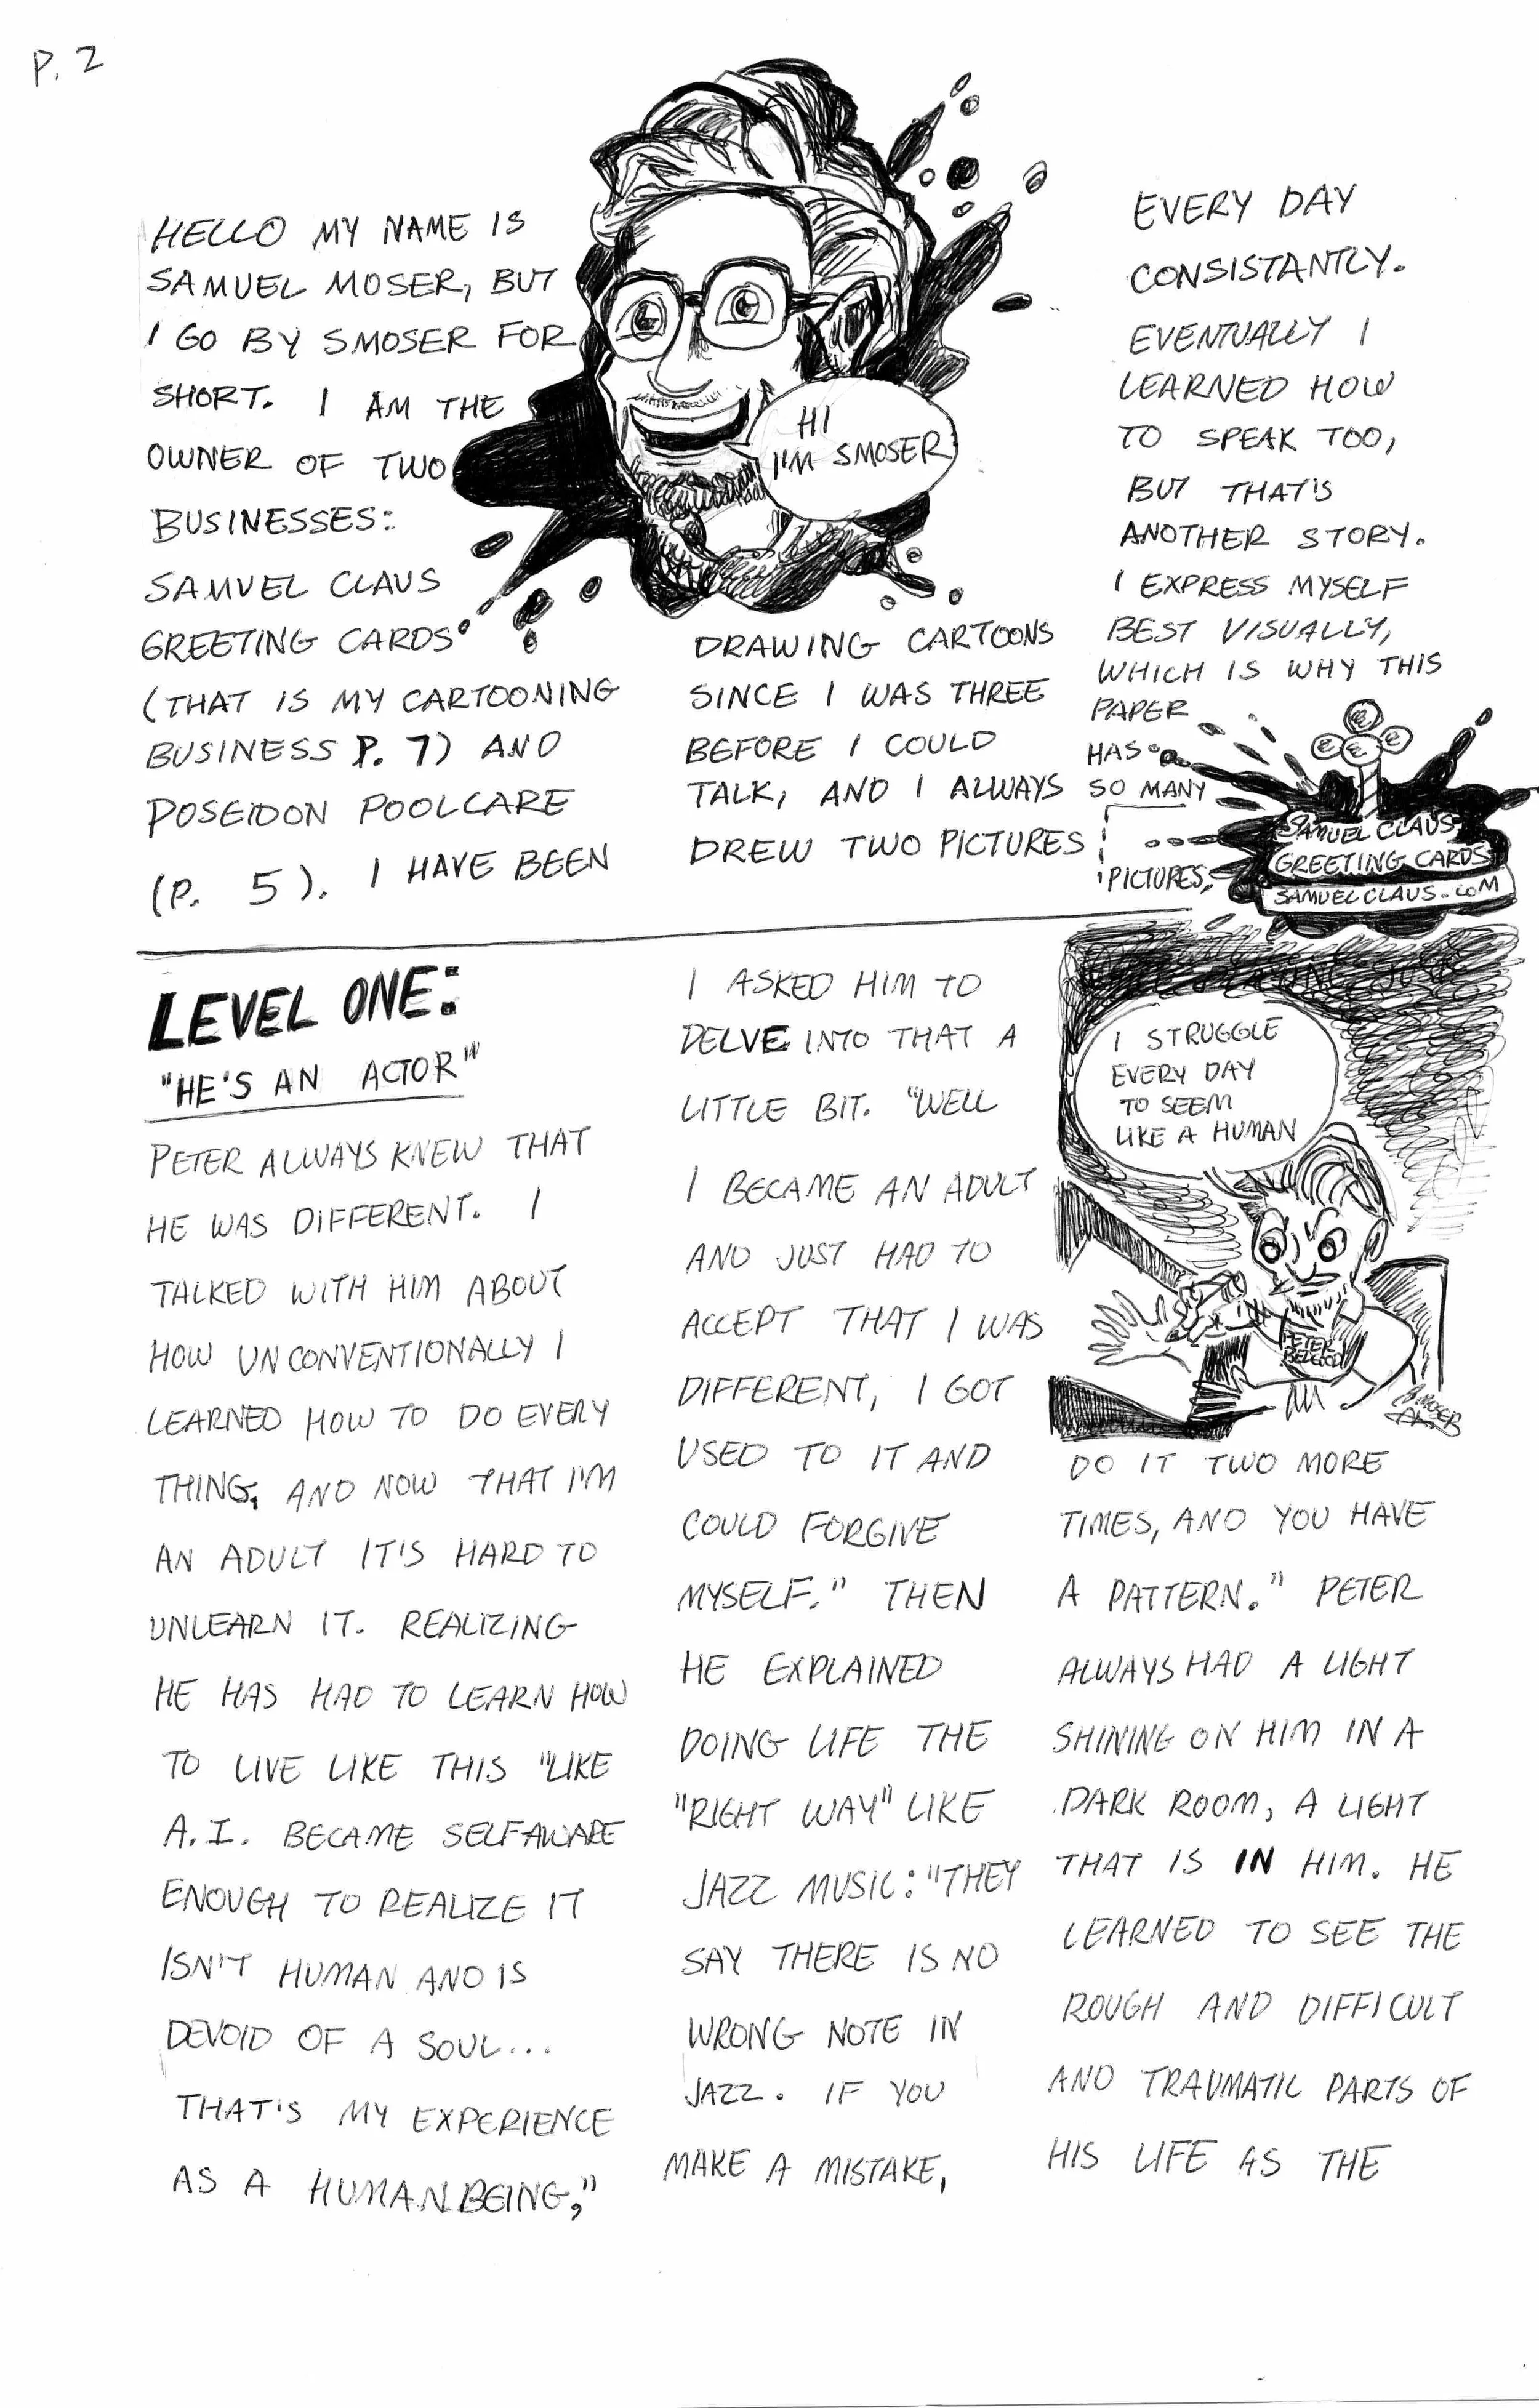 P. 2
HELLO MY NAME IS
SAMUEL MOSER, BUT
I GO BY SMOSER FOR
SHORT. I AM THE
OWNER OF TWO
BUSINESSES:
SAMUEL CLAUS
GREETING CARDS
(THAT IS MY CARTOONING
BUSINESS P. 7) AND
POSEIDON POOLCARE
(P. 5). I HAVE BEEN
HI
I'M SMOSER
DRAWING CARTOONS
SINCE I WAS THREE
BEFORE I COULD
TALK, AND I ALWAYS
DREW TWO PICTURES
EVERY DAY
CONSISTANTLY.
EVENTUALLY I
LEARNED HOW
TO SPEAK TOO,
BUT THAT'S
ANOTHER STORY.
I EXPRESS MYSELF
BEST VISUALLY,
WHICH IS WHY THIS
PAPER
HAS
SO MANY
PICTURES.
SAMUEL CLAUS
GREETING CARDS
SAMUELCLAUS.COM
LEVEL ONE:
"HE'S AN ACTOR"
PETER ALWAYS KNEW THAT
HE WAS DIFFERENT. I
TALKED WITH HIM ABOUT
HOW UNCONVENTIONALLY I
LEARNED HOW TO DO EVERY
THING, AND NOW THAT I'M
AN ADULT IT'S HARD TO
UNLEARN IT. REALIZING
HE HAS HAD TO LEARN HOW
TO LIVE LIKE THIS "LIKE
A.I. BECAME SELFAWARE
ENOUGH TO REALIZE IT
ISN'T HUMAN AND IS
DEVOID OF A SOUL...
THAT'S MY EXPERIENCE
AS A HUMAN BEING,"
I ASKED HIM TO
DELVE INTO THAT A
LITTLE BIT. "WELL
I BECAME AN ADULT
AND JUST HAD TO
ACCEPT THAT I WAS
DIFFERENT, I GOT
USED TO IT AND
COULD FORGIVE
MYSELF." THEN
HE EXPLAINED
DOING LIFE THE
"RIGHT WAY" LIKE
JAZZ MUSIC: "THEY
SAY THERE IS NO
WRONG NOTE IN
JAZZ. IF YOU
MAKE A MISTAKE,
I STRUGGLE
EVERY DAY
TO SEEM
LIKE A HUMAN
PETER
BELGOOD
DO IT TWO MORE
TIMES, AND YOU HAVE
A PATTERN." PETER
ALWAYS HAD A LIGHT
SHINING ON HIM IN A
DARK ROOM, A LIGHT
THAT IS IN HIM. HE
LEARNED TO SEE THE
ROUGH AND DIFFICULT
AND TRAUMATIC PARTS OF
HIS LIFE AS THE